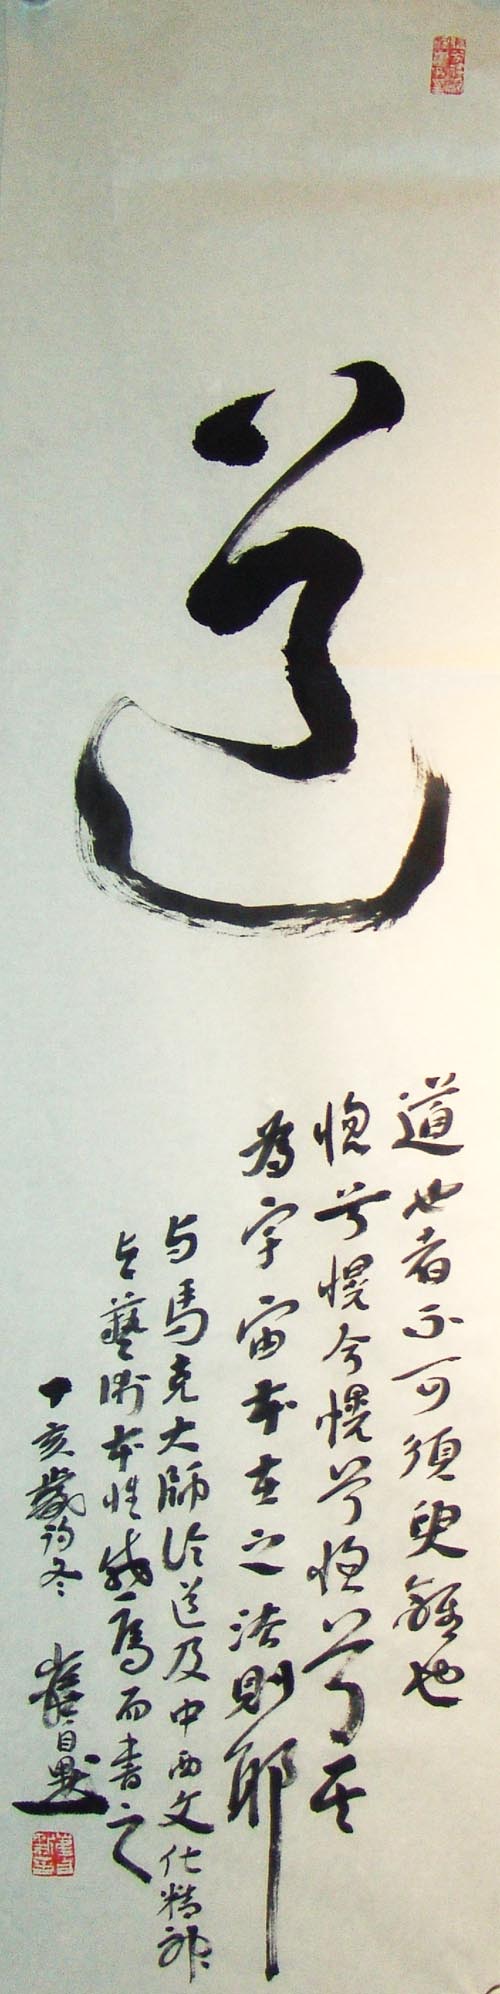 道
道也者不可须臾離也
惚兮愰兮愰兮惚兮其
為宇宙本在之法則耶
与馬克大師论道及中西文化精神
与藝術本性感焉而書之
丁亥歲初冬 崔自默